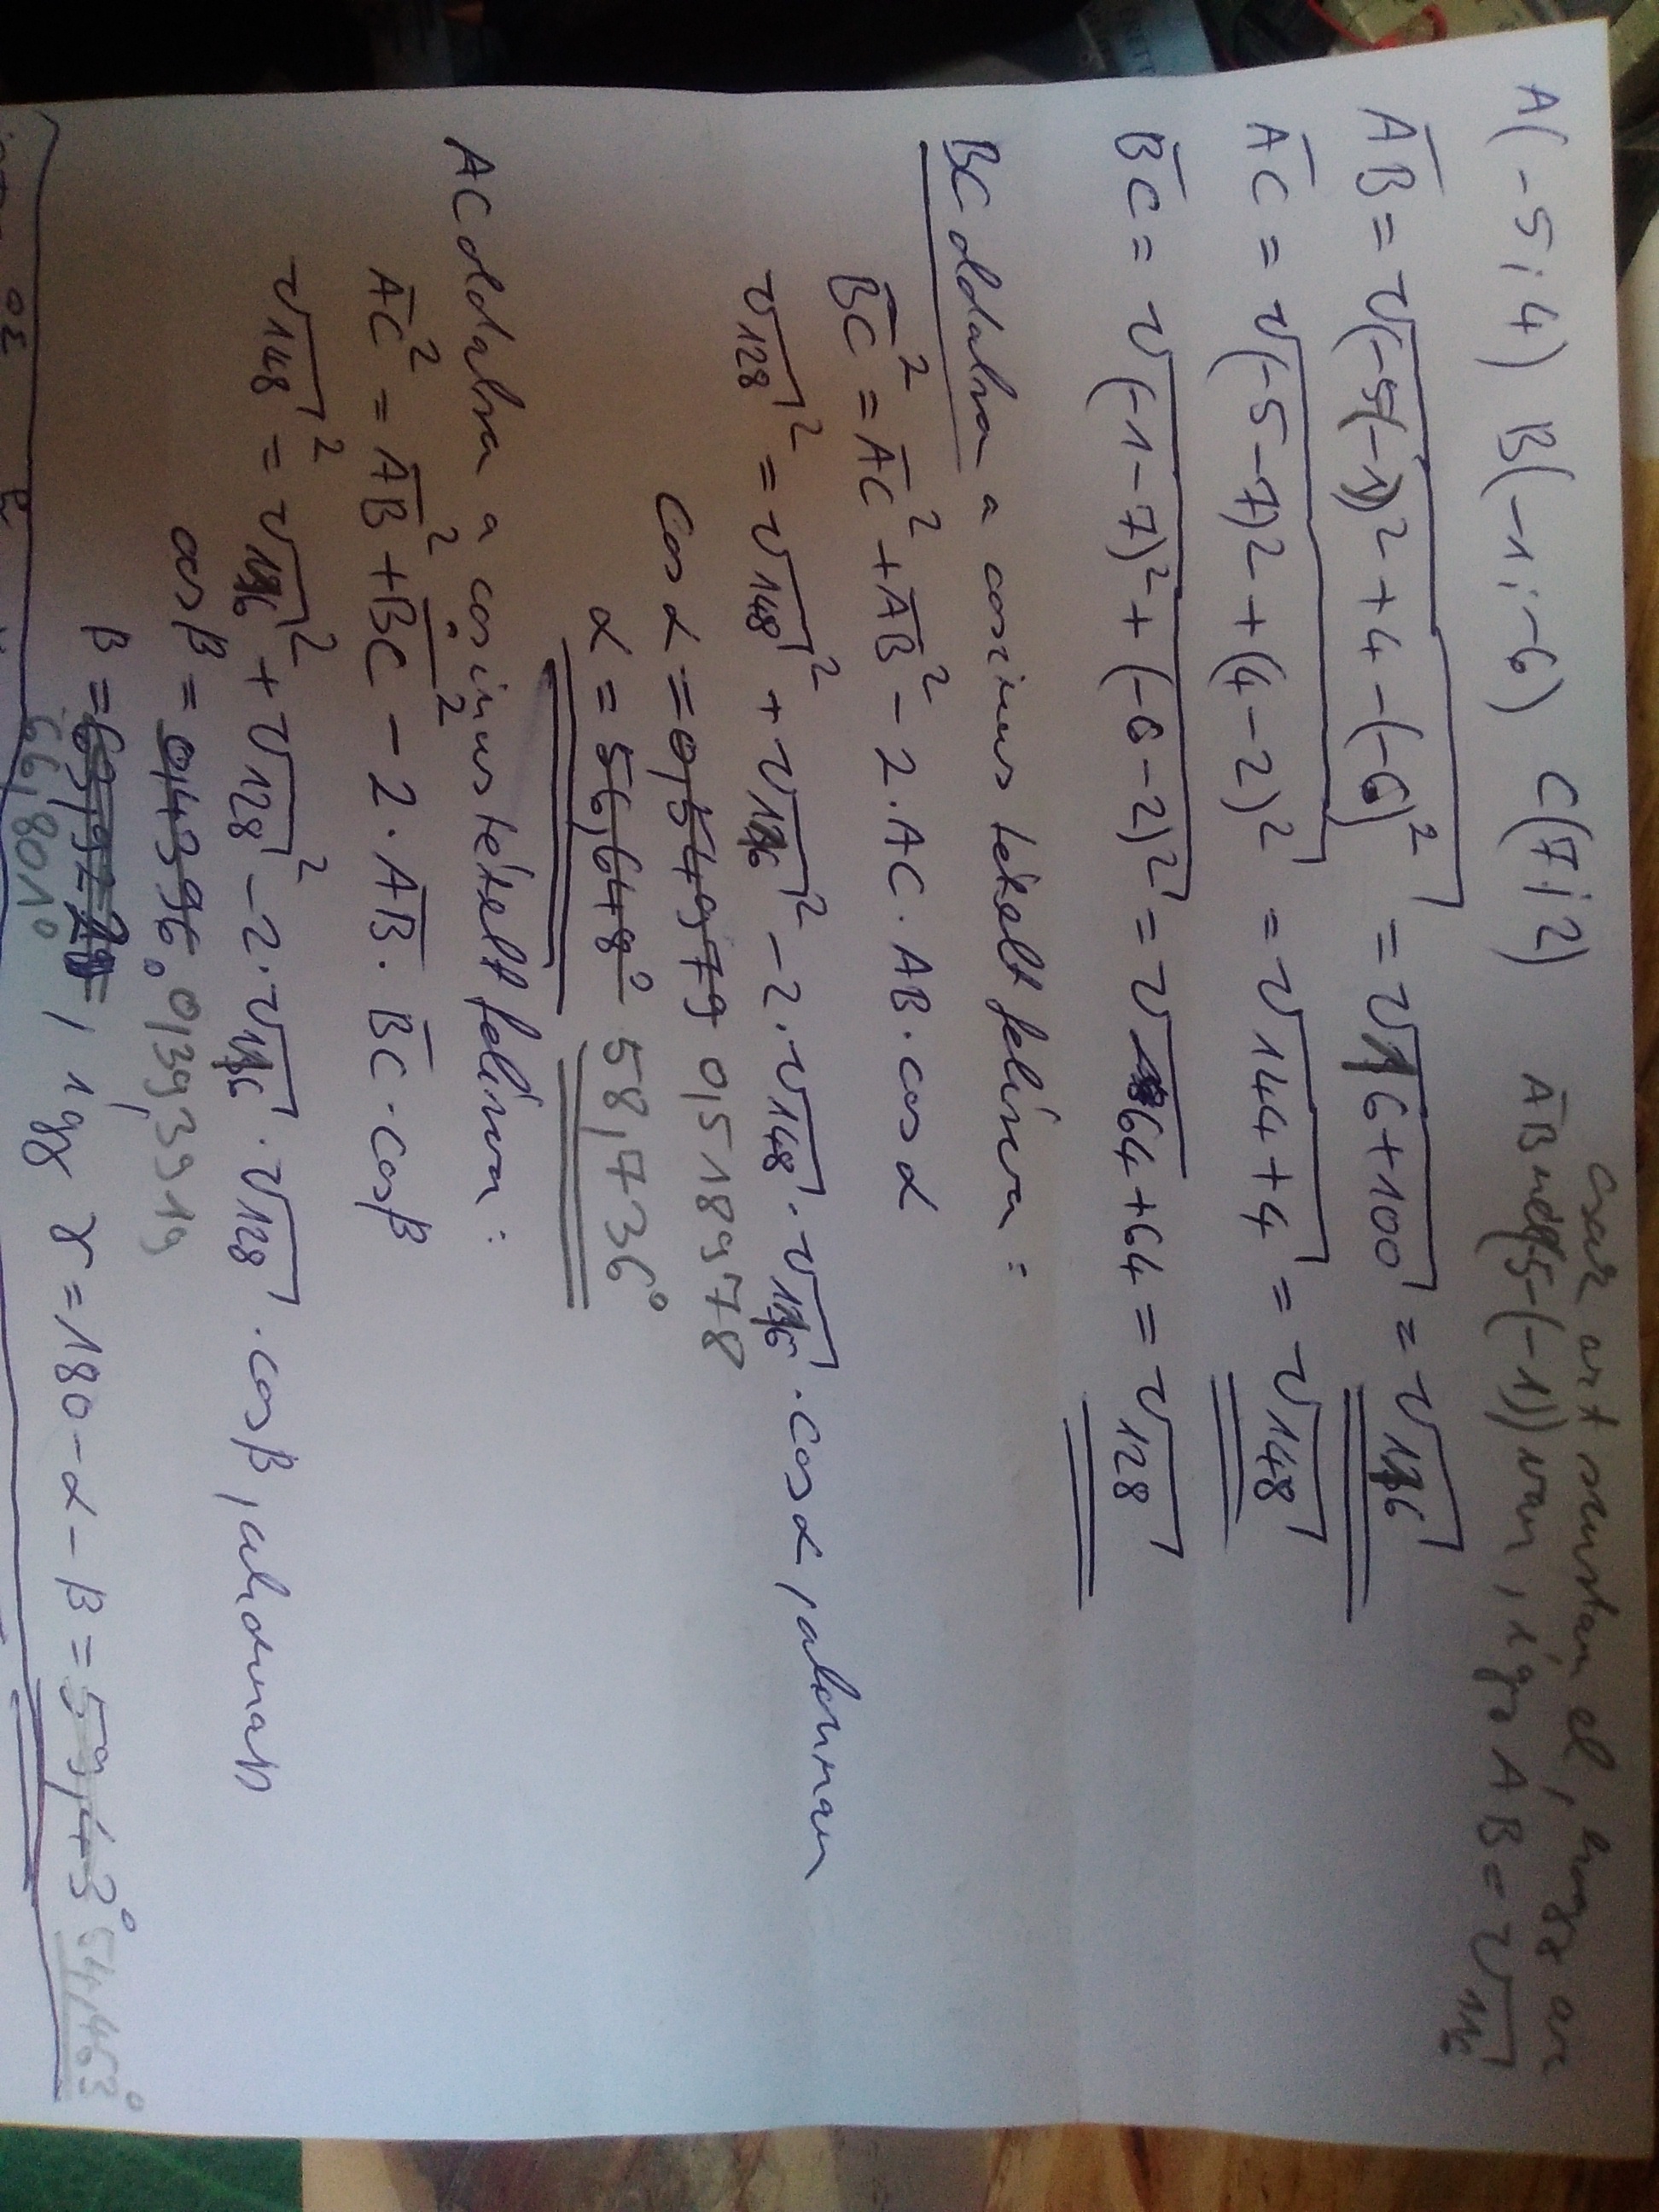 A(-5;4) B(-1;-6) C(7;2)
csak azt számoltam el, hogy az
AB nél (-5-(-1)) van, így AB = √116
AB = √(-5-(-1))² + 4-(-6)² = √16+100 = √116
AC = √(-5-7)2 + (4-2)² = √144+4 = √148
BC = √(-1-7)² + (-6-2)² = √64+64 = √128
BC oldalra a cosinus tételt felírva:
BC² = AC² + AB² - 2·AC·AB·cos α
√128² = √148² + √116² - 2·√148·√116·cos α, ahonnan
cos α = 0,54979 0,518978
α = 56,648° 58,736°
AC oldalra a cosinus tételt felírva:
AC² = AB² + BC² - 2·AB·BC·cos β
√148² = √116² + √128² - 2·√116·√128·cos β, ahonnan
cos β = 0,4396 0,393919
β = 66,801°, így γ = 180-α-β = 59,43° 54,463°